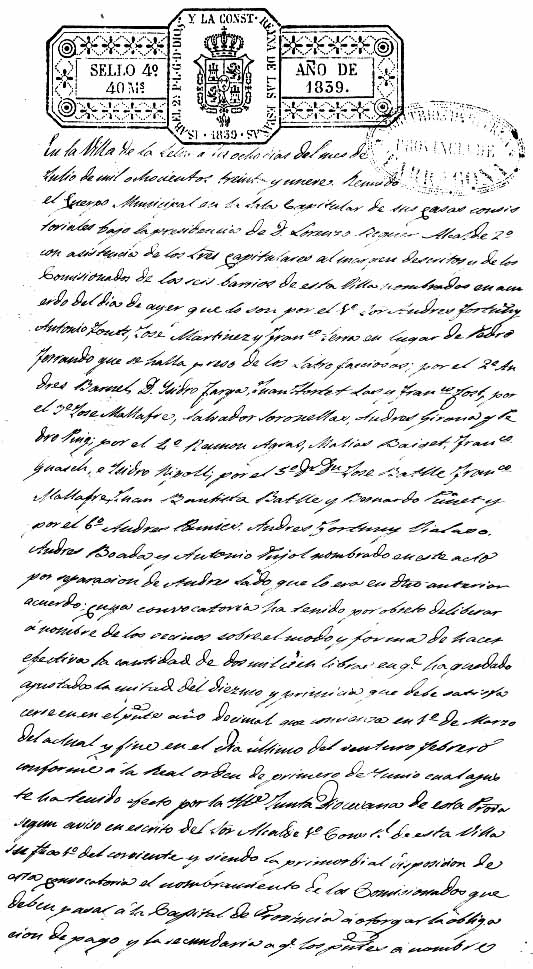 SELLO 4º
40 Mˢ
ISABEL 2ª P.L.G.D. DIOS Y LA CONST. REINA DE LAS ESPAÑAS
1839
AÑO DE
1839.
PROVINCIA DE
TARRAGONA
En la Villa de la Selva a los ocho dias del mes de
Julio de mil ochocientos treinta y nueve. Reunido
el Cuerpo Municipal en la Sala Capitular de sus casas consis
toriales bajo la presidencia de D. Lorenzo Alcalde 2º
con asistencia de los tres capitulares al margen descritos y de los
Comisionados de los seis barrios de esta Villa nombrados en acu
erdo del dia de ayer que lo son por el 1º Andres Fortuny
Antonio José Martinez y Franco. Serra en lugar de Pedro
Ferrando que se halla preso de los Latro facciosos; por el 2º An
dres Barnet, D. Isidro Juan y Franco. por
el 3º Jose Mallafré, Salvador Andres Girona y Pe
dro Puig; por el 4º Ramon Agras, Matias Baiget, Franco.
Guasch, e Isidro Ripoll; por el 5º José Batlle, Franco.
Mallafre, Juan Bautista Batlle y Bernardo y
por el 6º Andres Andres Fortuny
Andres Boada y Antonio Pujol nombrado en este acto
por separacion de Andres que lo era en dho anterior
acuerdo; cuya convocatoria ha tenido por objeto deliberar
á nombre de los vecinos sobre el modo y forma de hacer
efectiva la cantidad de dos mil cien libras en q.e ha quedado
ajustada la mitad del diezmo y primicia que debe satisfa
cerse en el pnte año decimal que comienza en 1º de Marzo
del actual y fine en el dia ultimo del venturo febrero
conforme á la Real orden de primero de Junio cual ajus
te ha tenido efecto por la Junta Diocesana de esta Prova
segun aviso en escrito del Sor Alcalde 1º Const.l de esta Villa
su fha 1º del corriente y siendo la primordial disposicion de
esta convocatoria el nombramiento de los Comisionados que
deben pasar á la Capital de Provincia á otorgar la obliga
cion de pago y la secundaria a q.e los pntes á nombre